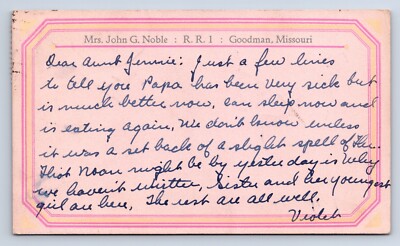 Mrs. John G. Noble : R. R. 1 : Goodman, Missouri
Dear Aunt Jennie: Just a few lines
to tell you Papa has been very sick but
is much better now, can sleep now and
is eating again, We don't know unless
it was a set back of a slight spell of Flu.
That Noon might be by yesterday is why
we haven't written, Sister and her youngest
girl are here, The rest are all well.
Violet